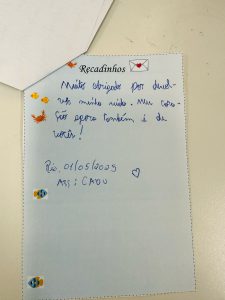 Recadinhos
Muito obrigado por devol-
ver minha vida. Meu cora-
ção agora também é de
vocês!
Rio, 01/05/2023
ASS: CADU